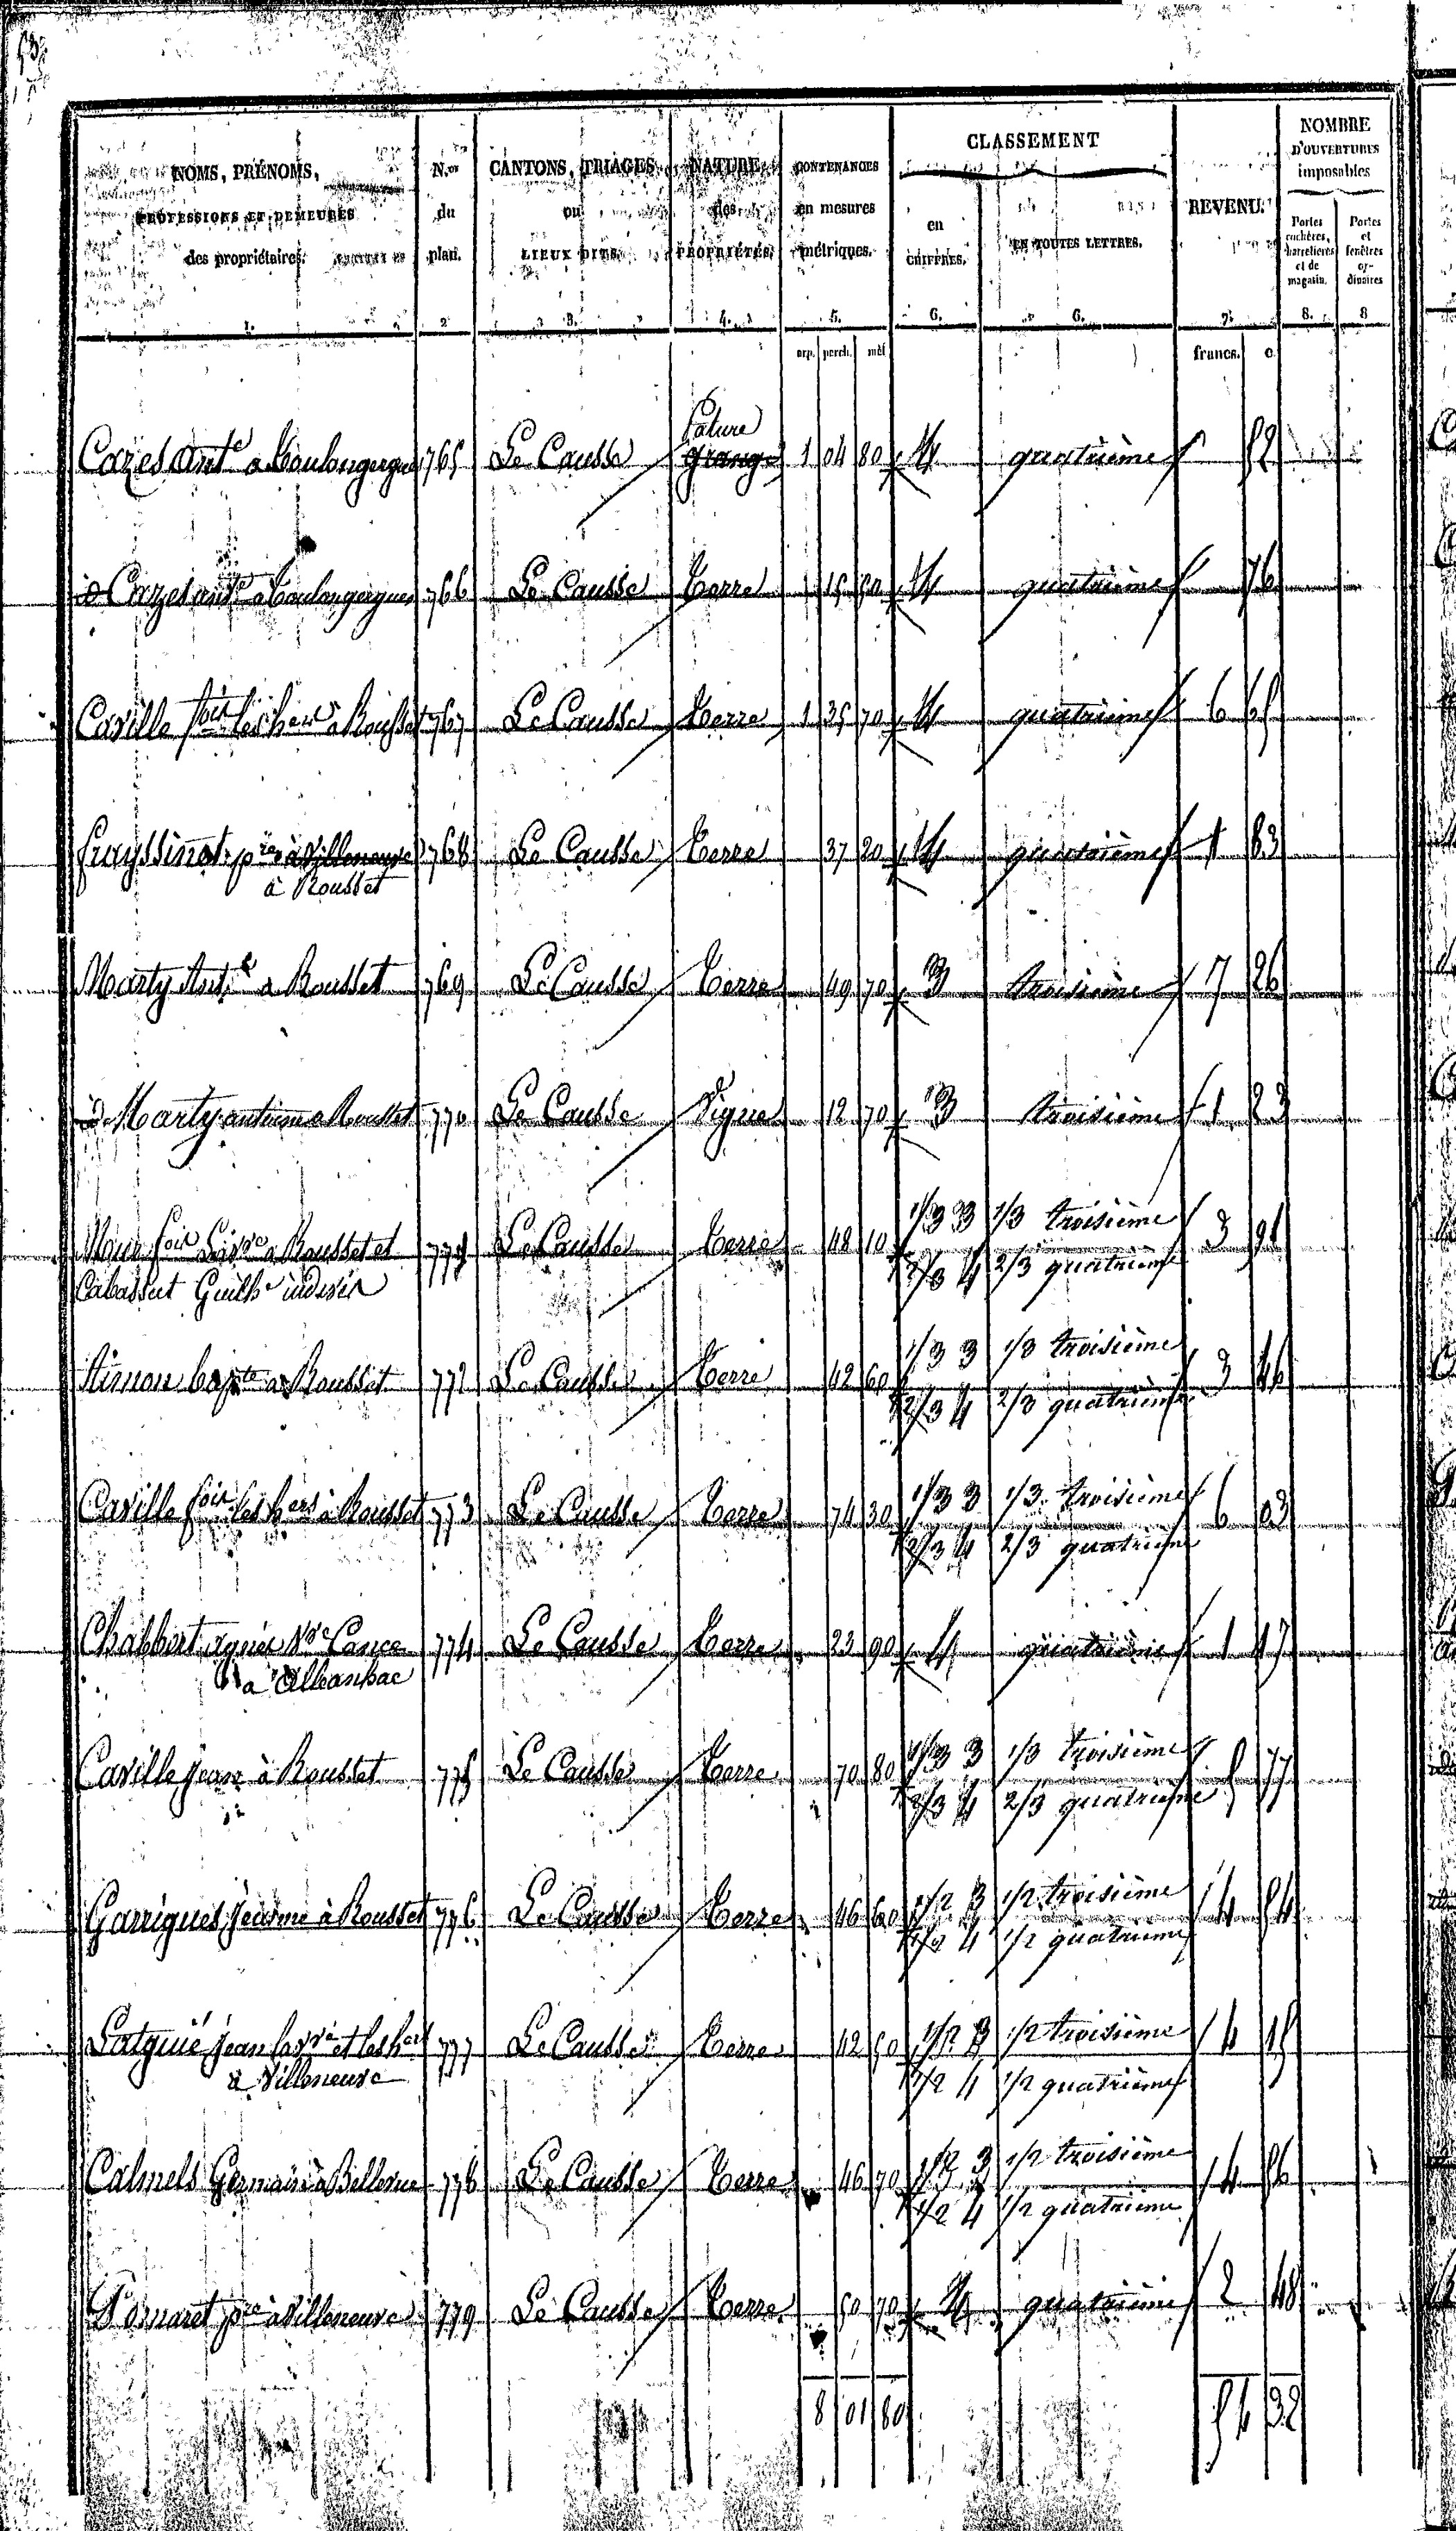 NOMS, PRÉNOMS, N.os CANTONS, TRIAGES, NATURE CONTENANCES CLASSEMENT NOMBRE
PROFESSIONS ET DEMEURES du ou des en mesures en EN TOUTES LETTRES. REVENU. D'OUVERTURES imposables
des propriétaires. plan. LIEUX DITS. PROPRIÉTÉS. métriques. CHIFFRES. Portes cochères, charretières et de magasin. Portes et fenêtres ordinaires
1. 2 3. 4. 5. 6. 6. 7. 8. 8
arp. perch. mèt francs. c.
Pature
Cazes Ant.e a 765 Le Causse grange 1 04 80 4 quatrième 52
Cazes ant.e a 766 Le Causse terre 15 50 4 quatrième 76
Caville foix les hers à Rousset 767 Le Causse terre 1 35 70 4 quatrième 6 65
Frayssinet p.re à Villeneuve 768 Le Causse terre 37 20 4 quatrième 1 83
à Rousset
Marty Ant.e a Rousset 769 Le Causse terre 49 70 3 troisième 7 26
id Marty antoine a Rousset 770 Le Causse Vigne 12 70 3 troisième 1 23
1/3 3 1/3 troisième
foix a Rousset et 771 Le Causse terre 48 10 3 91
2/3 4 2/3 quatrième
Cabassut Guilh.e indivis
1/3 3 1/3 troisième
bap.te a Rousset 772 Le Causse terre 42 60 3 46
2/3 4 2/3 quatrième
1/3 3 1/3 troisième
Caville foix les hers à Rousset 773 Le Causse terre 74 30 6 03
2/3 4 2/3 quatrième
Chabbert agnès V.ve 774 Le Causse terre 23 90 4 quatrième 1 17
a
1/3 3 1/3 troisième
Caville Jean à Rousset 775 Le Causse terre 70 80 5 77
2/3 4 2/3 quatrième
1/2 3 1/2 troisième
Garrigues Jerome à Rousset 776 Le Causse terre 46 60 4 54
1/2 4 1/2 quatrième
1/2 3 1/2 troisième
Jean et les hers 777 Le Causse terre 42 50 4 15
à Villeneuve 1/2 4 1/2 quatrième
1/2 3 1/2 troisième
Calmels Germain à Bellevue 778 Le Causse terre 46 70 4 56
1/2 4 1/2 quatrième
p.re à Villeneuve 779 Le Causse terre 50 70 4 quatrième 2 48
8 01 80 54 32